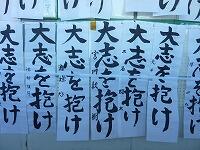 大志を抱け
大志を抱け
大志を抱け
大志を抱け
大志を抱け
大志を抱け
大志を抱け